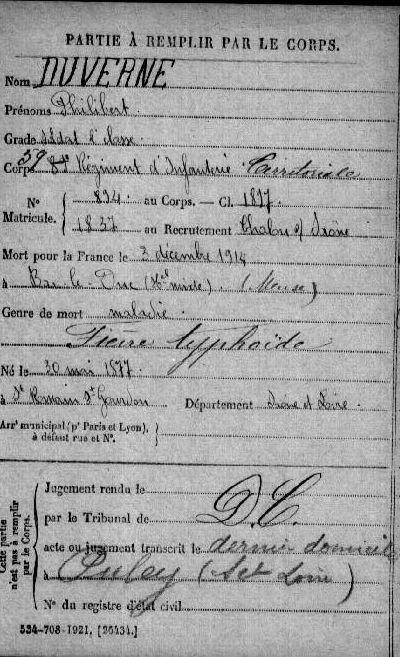 PARTIE À REMPLIR PAR LE CORPS.
Nom DUVERNE
Prénoms Philibert
Grade soldat 2e classe
Corps 59e Régiment d'Infanterie Territoriale
N° Matricule. { 894 au Corps. — Cl. 1897.
1837 au Recrutement Chalon s/ Saône
Mort pour la France le 3 décembre 1914
à Bar-le-Duc (Hal mixte). (Meuse)
Genre de mort maladie.
Fièvre typhoïde
Né le 30 mai 1877.
à St Romain St Gourdon Département Saône et Loire.
Arrt municipal (pr Paris et Lyon), à défaut rue et N°. }
Cette partie n'est pas à remplir par le Corps.
Jugement rendu le
par le Tribunal de D.C.
acte ou jugement transcrit le dernier domicile
à (Set Loire)
N° du registre d'état civil
534-708-1921. [26434.]